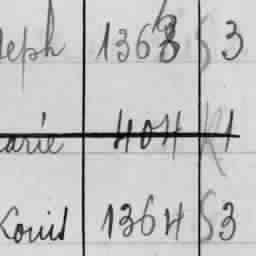 eph 1363 S 3
arie 404 R 1
Louis 1364 S 3